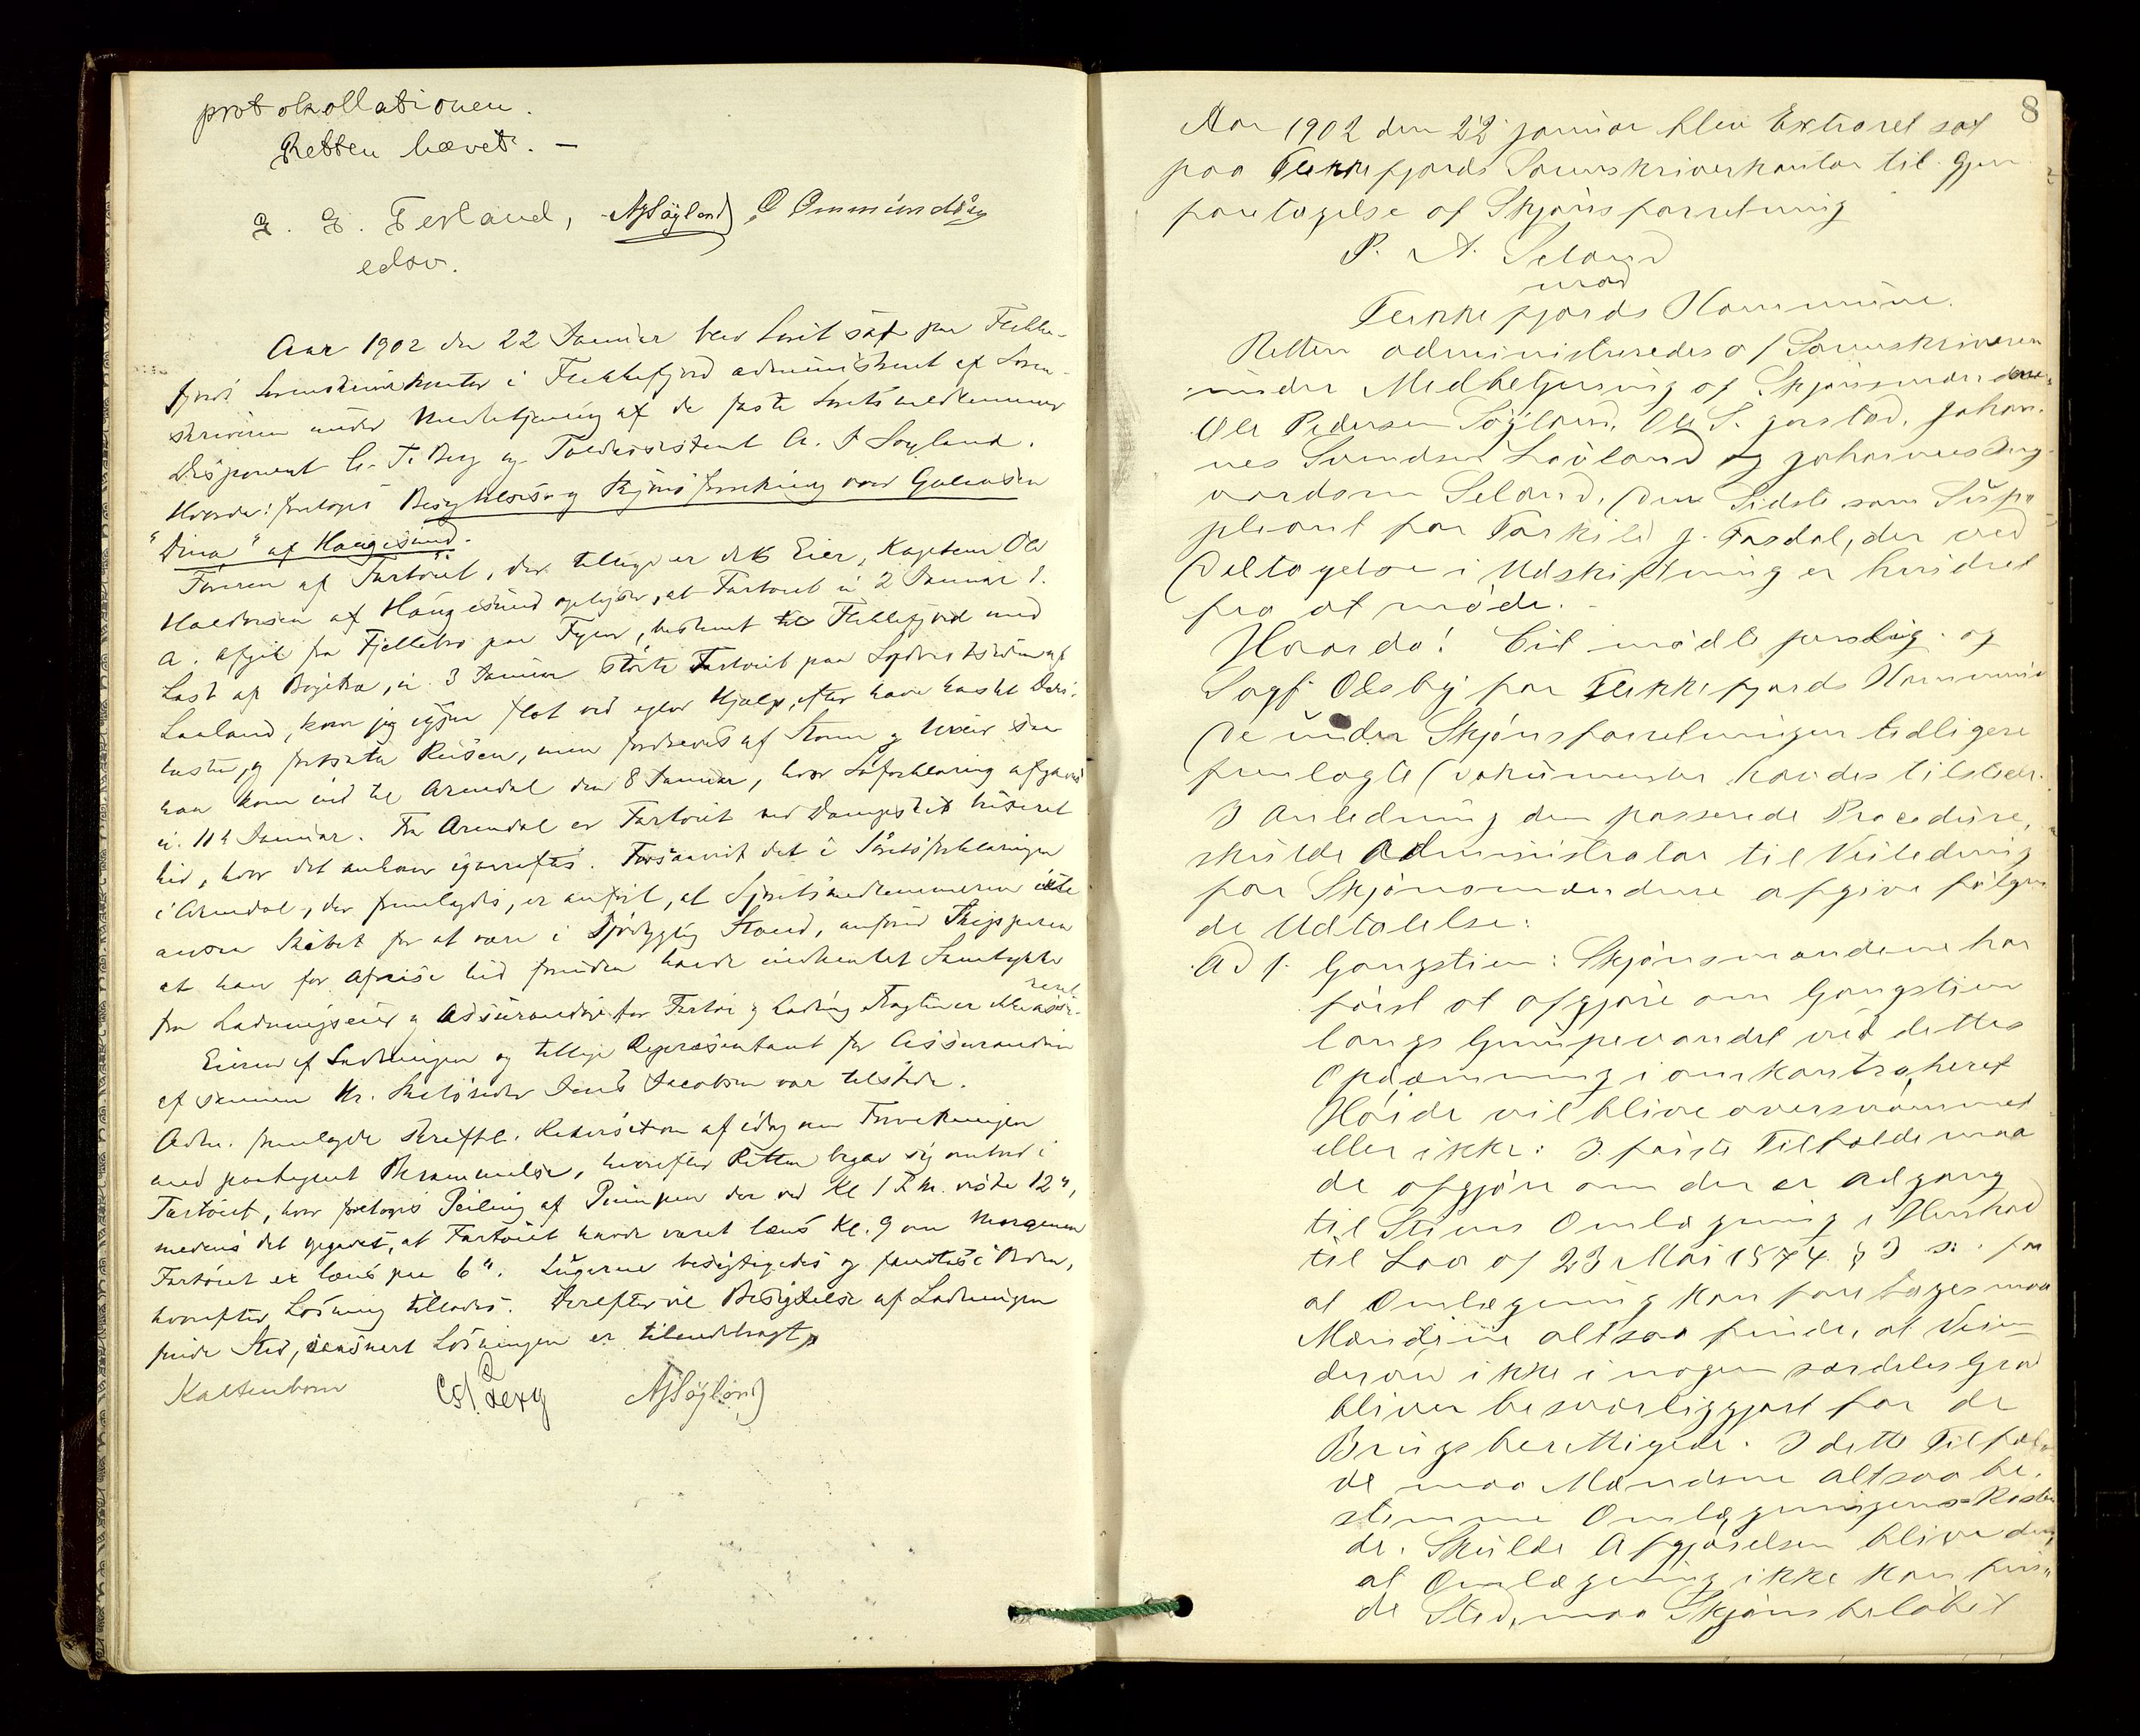 protokollationen.
Retten hævet. –
G. G. Fesland, AJSøyland O Ommundsen
edsv.
Aar 1902 den 22 Januar blev Søret sat paa Flekke-
fjords Sorenskriverkontor i Flekkefjord administreret af Soren-
skriveren under Medbetjening af de faste Søretsmedlemmer
Disponent C. T. Berg og Toldassistent A. J Søyland.
Hvorda: foretoges Besigtelses og Skjønsforretning over Galeasen
"Dina" af Haugesund.
Føreren af Fartøiet, der tillige er dets Eier, Kaptein Ole
Haldorsen af Haugesund opgiver, at Fartøiet den 2 Januar d.
A. afgik fra Fjellebro paa Fyen, bestemt til Flekkefjord med
Last af Boghvede, den 3 Januar stødte Fartøiet paa Sydvestsiden af
Laaland, kom igjen flot ved egen Hjælp, efter have kastet Dæks-
lasten, og fortsatte Reisen, men fordreves af Storm og Uveir saa
han kom ind til Arendal den 8 Januar, hvor Søforklaring afgaves
den 11te Januar. Fra Arendal er Fartøiet med Dampskib bugseret
hid, hvor det ankom igaaraftes. Forsaavidt det i Søretsforklaringen
i Arendal, der fremlagdes, er anført, at Søretsmedlemmerne ikke
anser Skibet for at være i sjødygtig Stand, anførte Skipperen
at han før Afreise hid forinden havde indhentet Samtykke
fra Ladningseier og Assurandører for Fartøi og Ladning. Fragten er ikke assureret
Eieren af Ladningen og tillige Repræsentant for Assurandøren
af samme Hr. Jacobsen var tilstede.
Adm. fremlagde skriftl. Rekvisition af idag om Forretningen
med paategnet Berammelse, hvorefter Retten begav sig ombord i
Fartøiet, hvor foretoges Peiling af Pumpen der ved Kl 1 E.M. viste 12",
medens det opgaves, at Fartøiet havde været læns Kl. 9 om Morgenen
Fartøiet er læns paa 6". Lugerne besigtigedes og fandtes i Orden,
hvorefter Losning tillades. Derefter vil Besigtelse af Ladningen
finde Sted, saasnart Losningen er tilendebragt
Kaltenborn CT. Berg AJSøyland
8
Aar 1902 den 22 januar blev Extraret sat
paa Flekkefjords Sorenskriverkontor til Gjen
foretagelse af Skjønsforretning
P. A. Seland
mod
Flekkefjords Kommune.
Retten administreredes af Sorenskriveren
under Medbetjening af Skjønsmændene
Ole Pedersen Søyland, Ole S. Josstad, Johan-
nes Svendsen Løvland og Johannes Sig-
vardsen Seland, den Sidste som Sup-
pleant for Tarkild J. Fosdal, der ved
Deltagelse i Udskiftning er hindret
fra at møde. –
Hvorda! Cit mødte perslig. og
Sagf. Olsby for Flekkefjords Kommune
De under Skjønsforretningen tidligere
fremlagte Dokumenter havdes tilstede.
I Anledning den passerede Procedure,
skulde Administrator til Veiledning
for Skjønsmændene afgive følgen
de Udtalelse:
Ad 1. Gangstien: Skjønsmændene har
først at afgjøre om Gangstien
langs Grunpevandet ved dettes
Opdæmning i omkontraheret
Høide vil blive oversvømmet
eller ikke: I første Tilfælde maa
de afgjøre om der er Adgang
til Stiens Omlægning i Henhold
til Lov af 23 Mai 1874 § 3 s: for
at Omlægning kan foretages maa
Mændene altsaa finde, at Veien
derved ikke i nogen særdeles Grad
bliver besværliggjort for de
Brugsberettigede. I dette Tilfæl
de maa Mændene altsaa be-
stemme Omlægningens Kosten
de. Skulde Afgjørelsen blive den,
at Omlægning ikke kan fin-
de Sted, maa Skjønsbeløbet